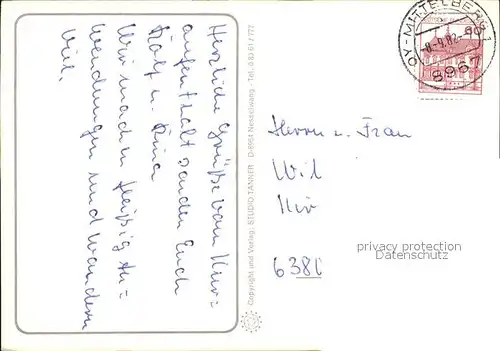 Herzliche Grüße vom Kur=
aufenthalt senden Euch
Rolf u. Rina
Wir machen fleißig An=
wendungen und wandern
viel.
Copyright und Verlag: STUDIO TANNER · D-8964 Nesselwang · Tel. 0 83 61 / 777
OY-MITTELBERG 1
-8.-9.82-
8967
60
Herrn u. Frau
Wil
Kir
6380
privacy protection
Datenschutz